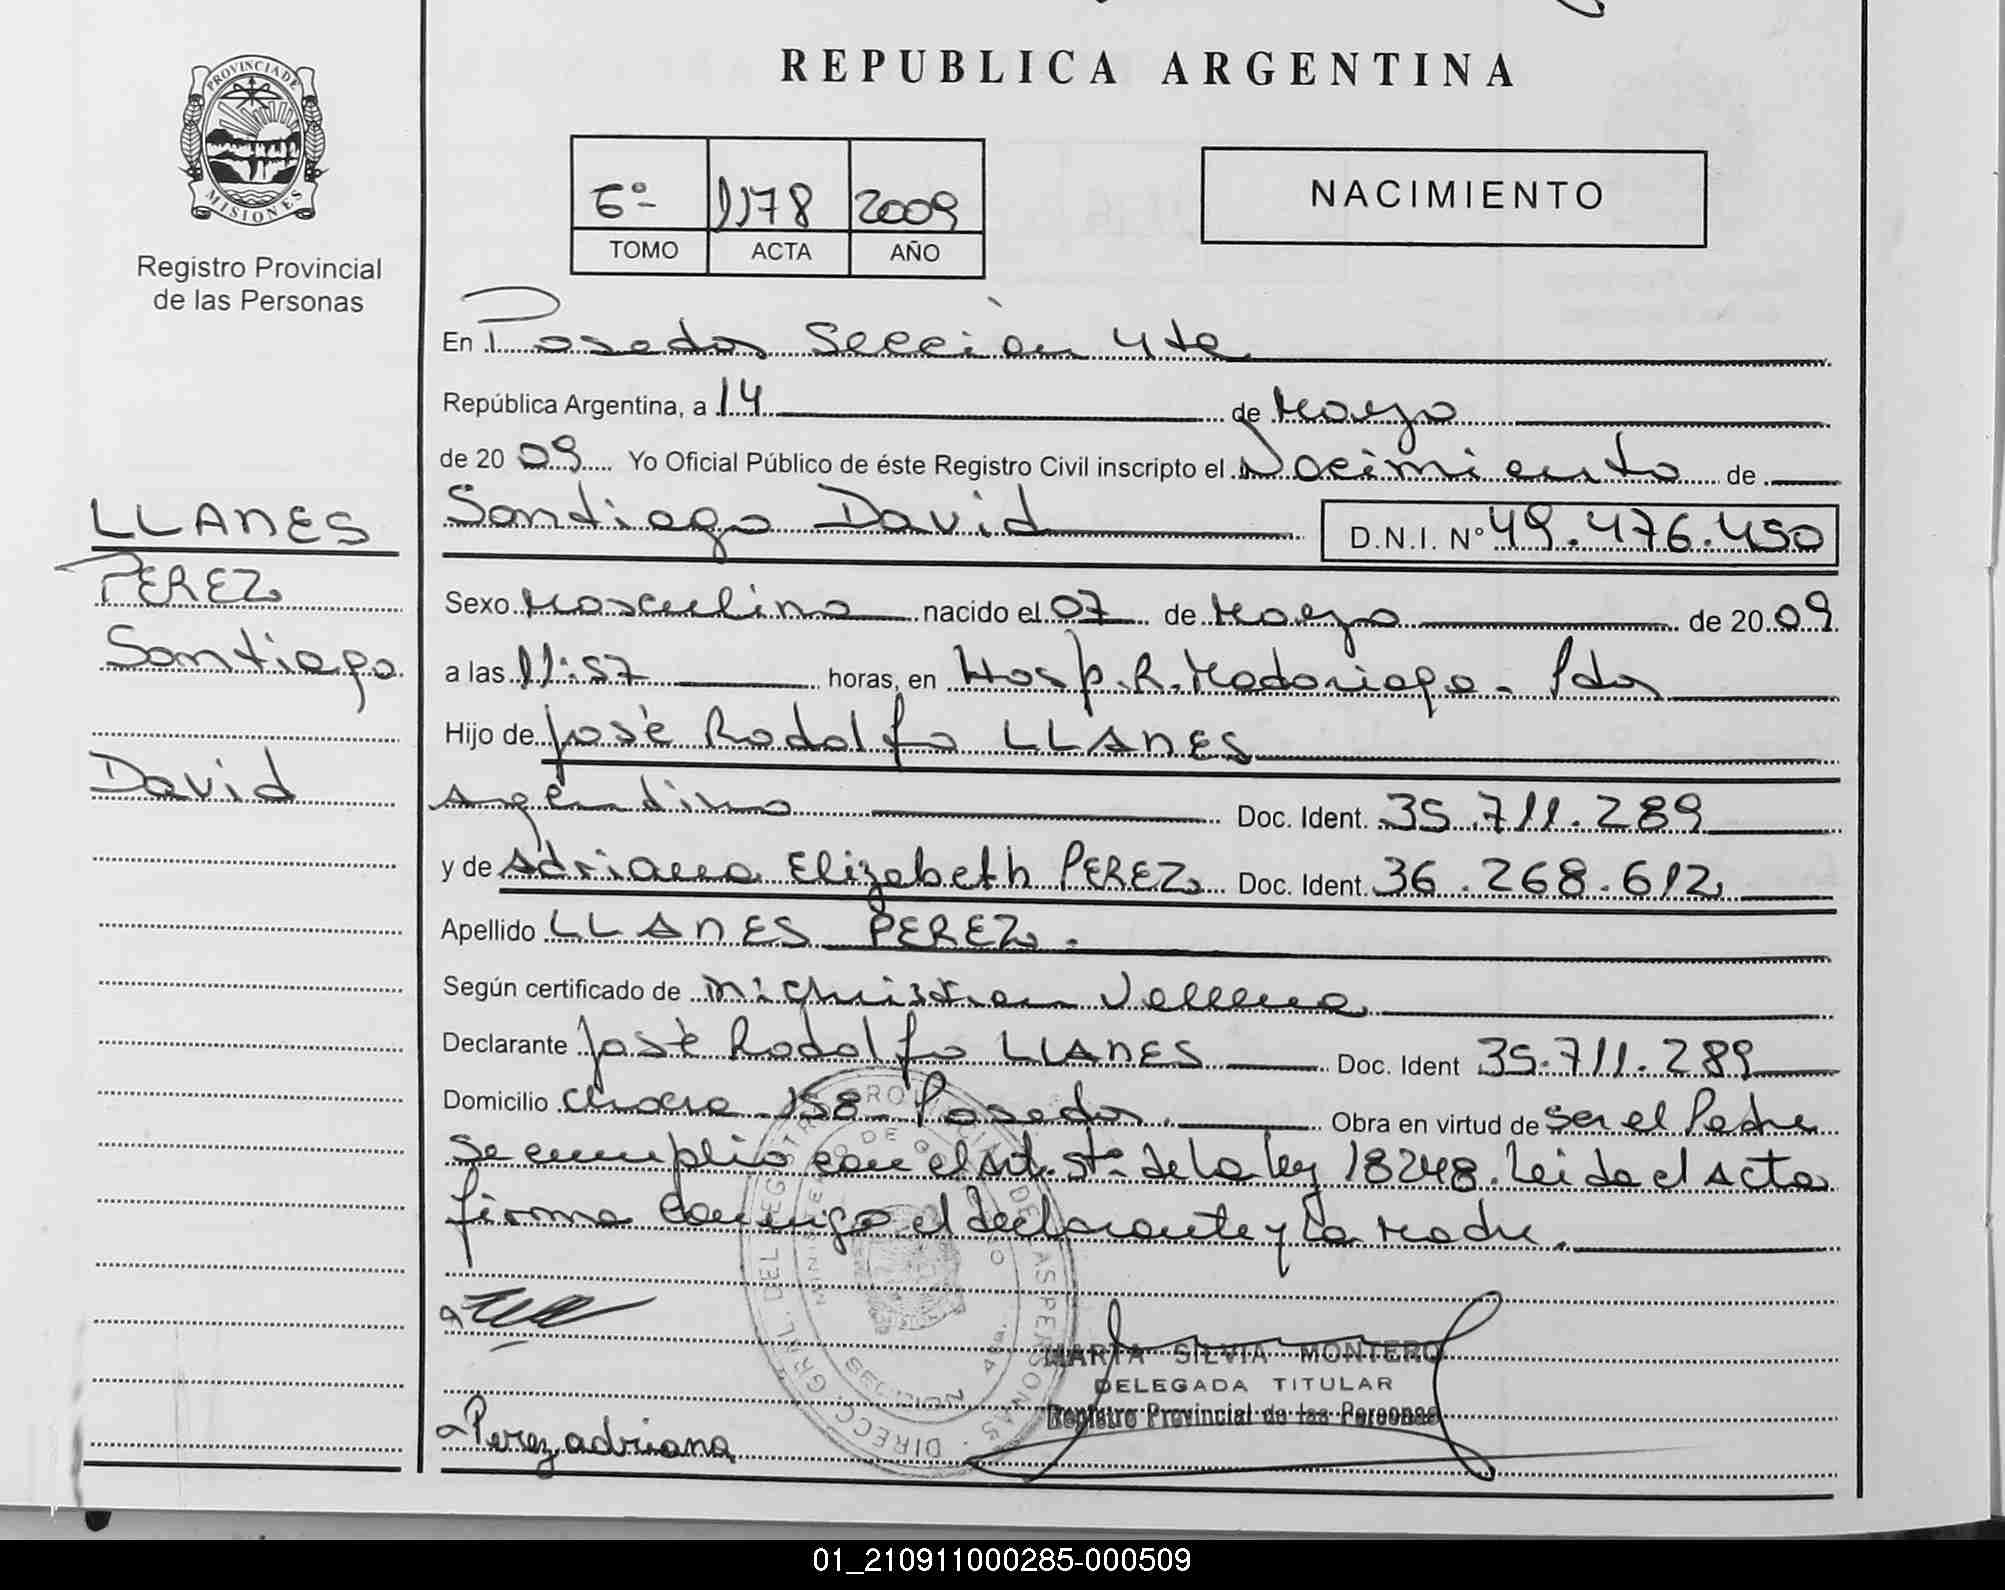 PROVINCIA DE
MISIONES
Registro Provincial
de las Personas
LLANES
PEREZ
Santiago
David
REPUBLICA ARGENTINA
6º 1178 2009
TOMO ACTA AÑO
NACIMIENTO
En Posadas Sección 4ta
República Argentina, a 14 de Mayo
de 20 09 Yo Oficial Público de éste Registro Civil inscripto el Nacimiento de
Santiago David D.N.I. Nº 49.476.450
Sexo Masculino nacido el 07 de Mayo de 20 09
a las 11:57 horas, en Hosp. R. Madariaga - Pdas
Hijo de José Rodolfo LLANES
Argentino Doc. Ident. 35.711.289
y de Adriana Elizabeth PEREZ Doc. Ident. 36.268.612
Apellido LLANES PEREZ.
Según certificado de
Declarante José Rodolfo LLANES Doc. Ident 35.711.289
Domicilio Chacra 158 Posadas. Obra en virtud de ser el Padre
se cumplio con el Art. 5to de la ley 18248. Leida el Acta
firma conmigo el declarante y la madre.
MARTA SILVIA MONTERO
DELEGADA TITULAR
Registro Provincial de las Personas
Perez adriana
DIRECC. GRAL. DEL REGISTRO PROVINCIAL DE LAS PERSONAS
MINISTERIO DE GOBIERNO
MISIONES
01_210911000285-000509